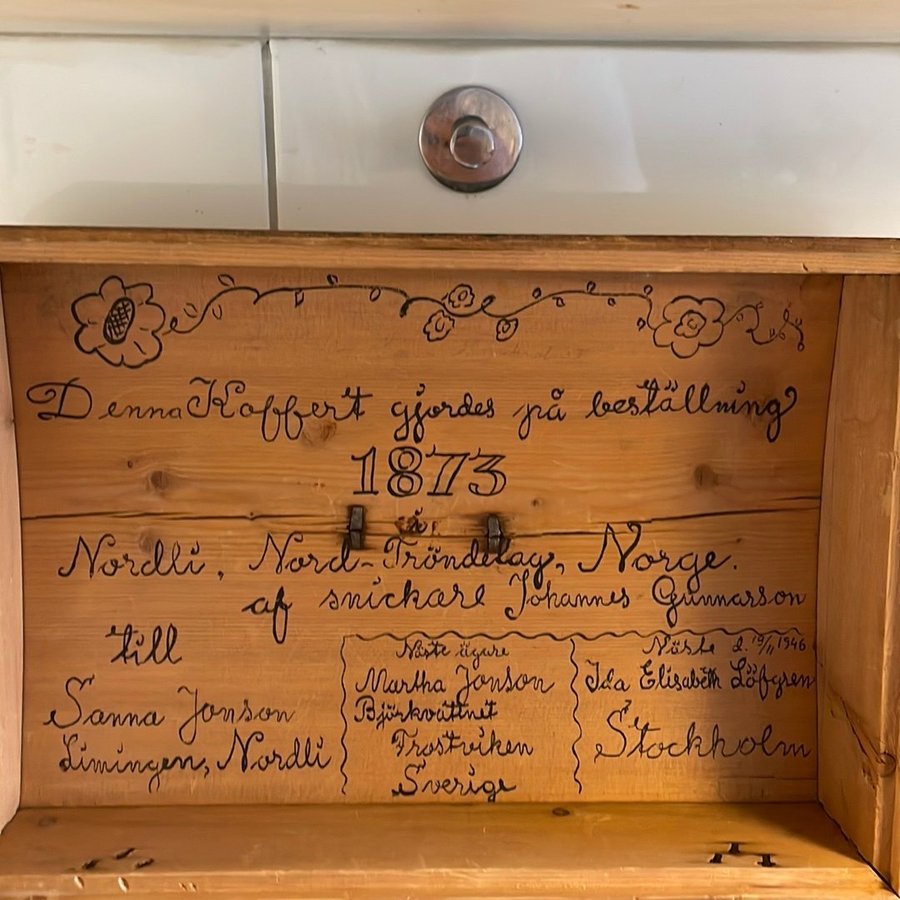 Denna Koffert gjordes på beställning
1873
i
Nordli, Nord-Tröndelag, Norge.
af snickare Johannes Gunnarson
till
Sanna Jonson
Limingen, Nordli
Näste ägare
Martha Jonson
Björkvattnet
Frostviken
Sverige
Näste d. 19/11 1946
Ida Elisabeth Löfgren
Stockholm